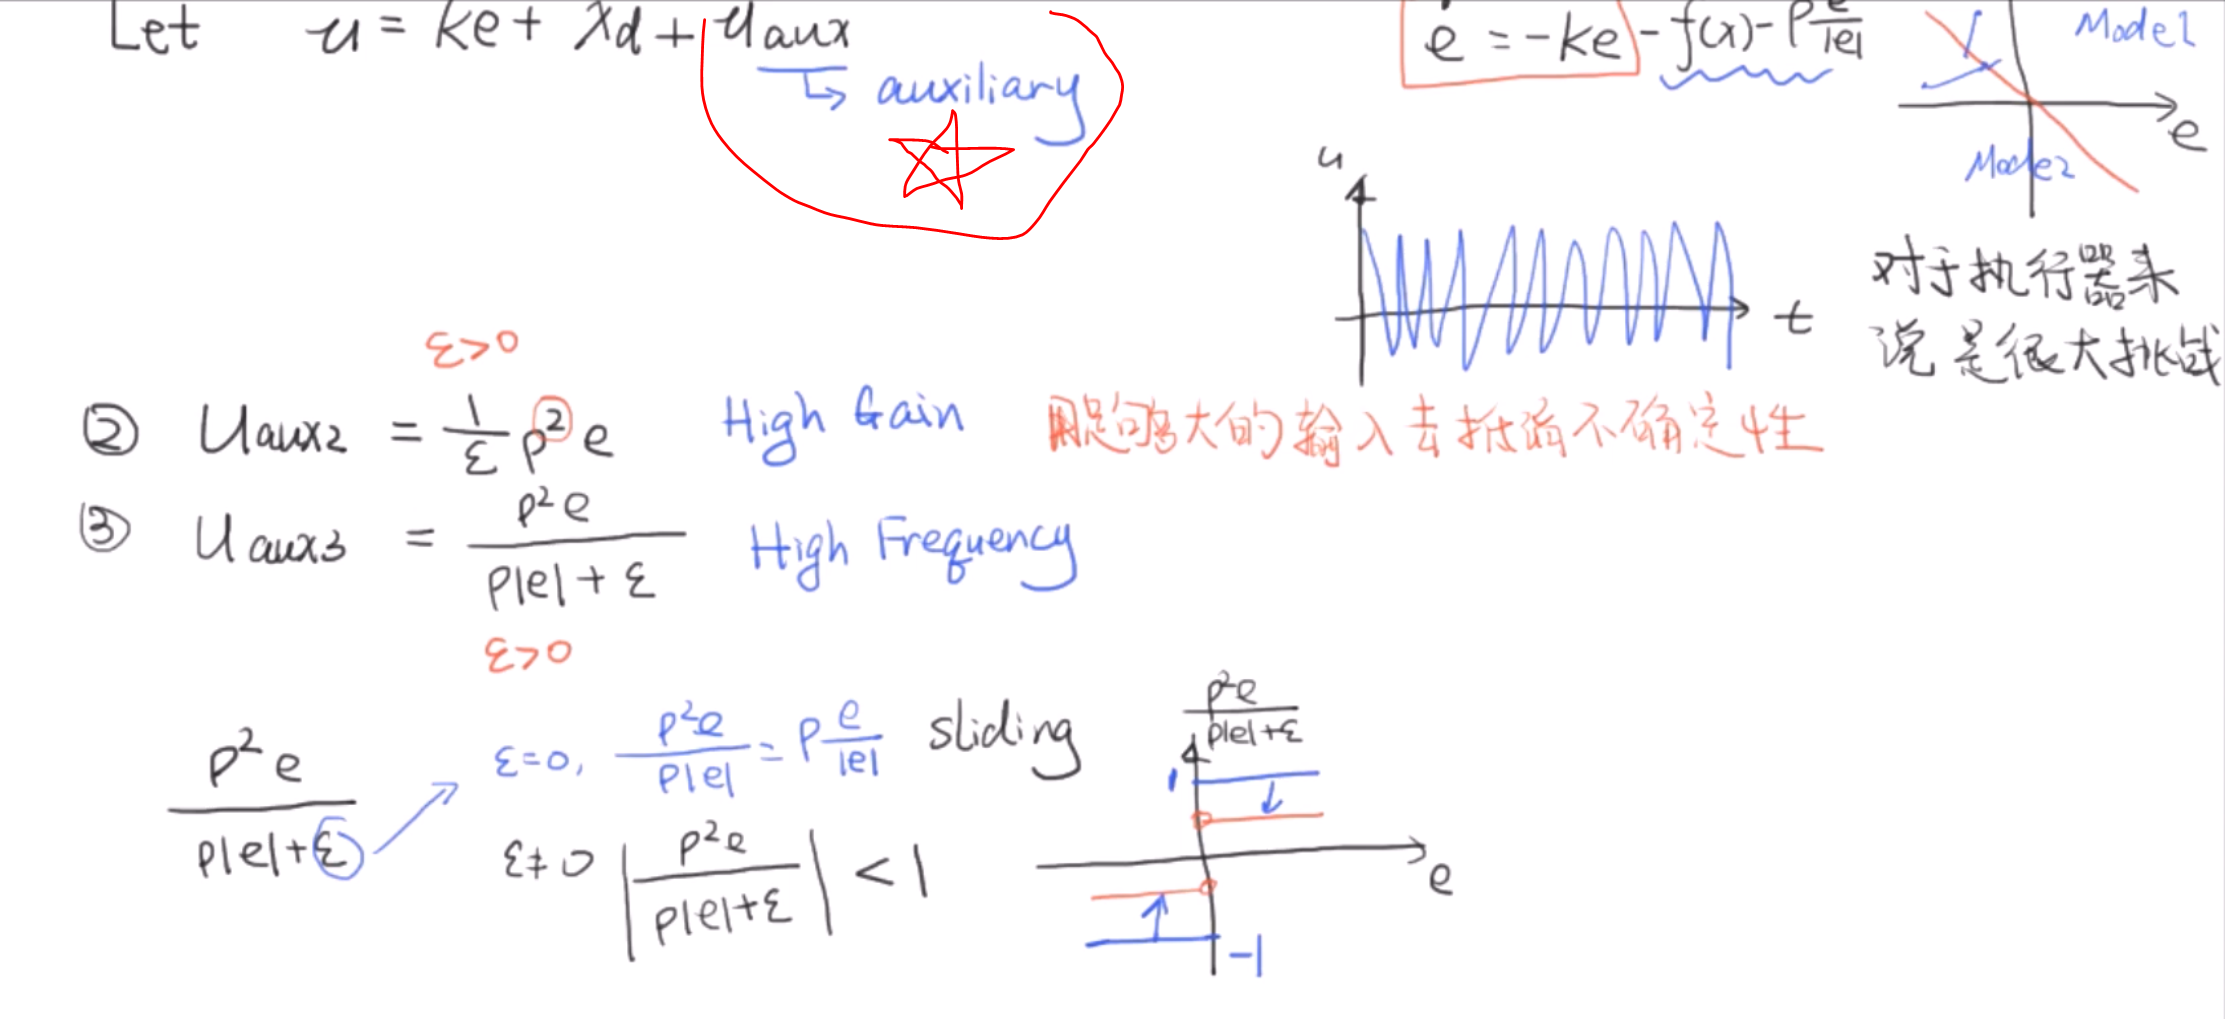 Let u = ke + ẋd + uaux
↳ auxiliary
ė = -ke - f(x) - ρ e/|e|
Mode1
e
Mode2
u
t
对于执行器来
说是很大挑战
ε>0
② uaux2 = 1/ε ρ² e High Gain 用足够大的输入去抵消不确定性
③ uaux3 = ρ²e / (ρ|e| + ε) High Frequency
ε>0
ρ²e / (ρ|e| + ε)
ε=0, ρ²e / (ρ|e|) = ρ e/|e| sliding
ε≠0 |ρ²e / (ρ|e|+ε)| < 1
ρ²e / (ρ|e|+ε)
1
e
-1